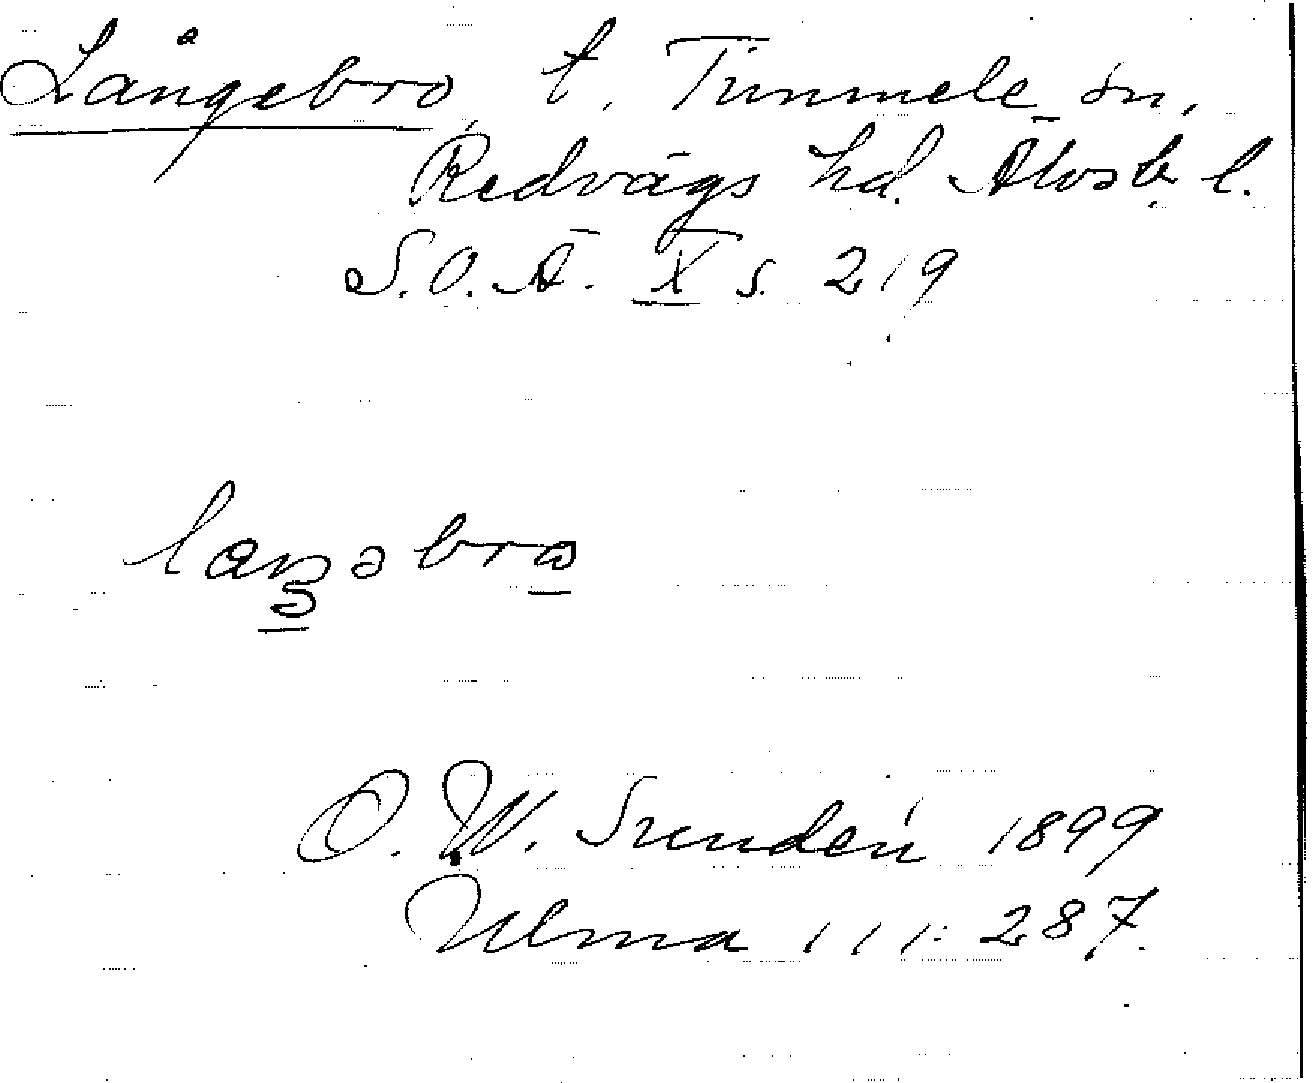 Långebro, t. Timmele sn,
Redvägs hd. Älvsb. l.
S.O.Ä. X s. 219
O. W. Sundén 1899
Ulma 111:287.